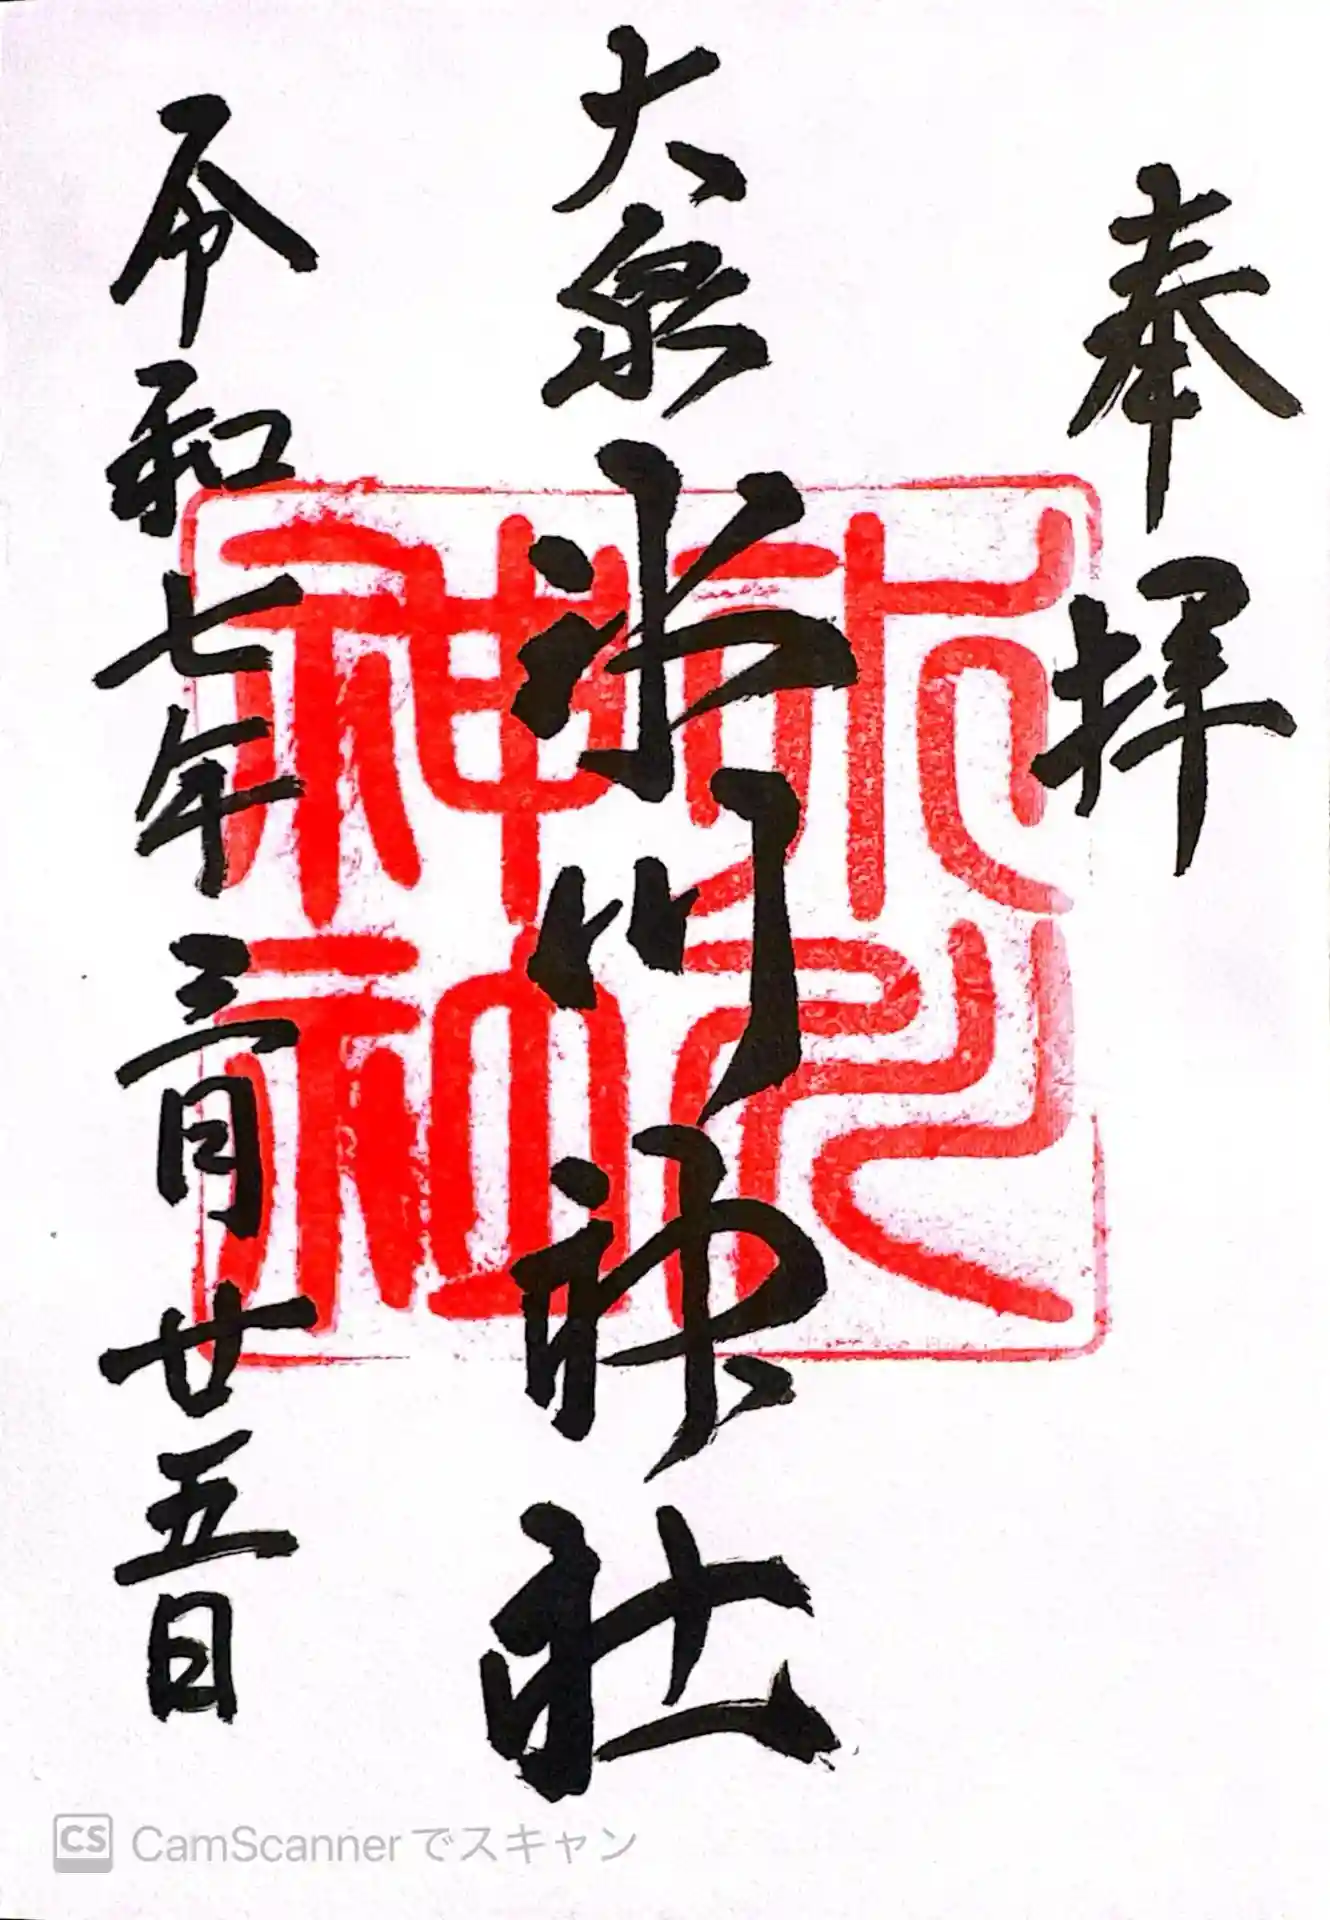 奉拝
大泉氷川神社
令和七年三月廿五日
CS CamScannerでスキャン